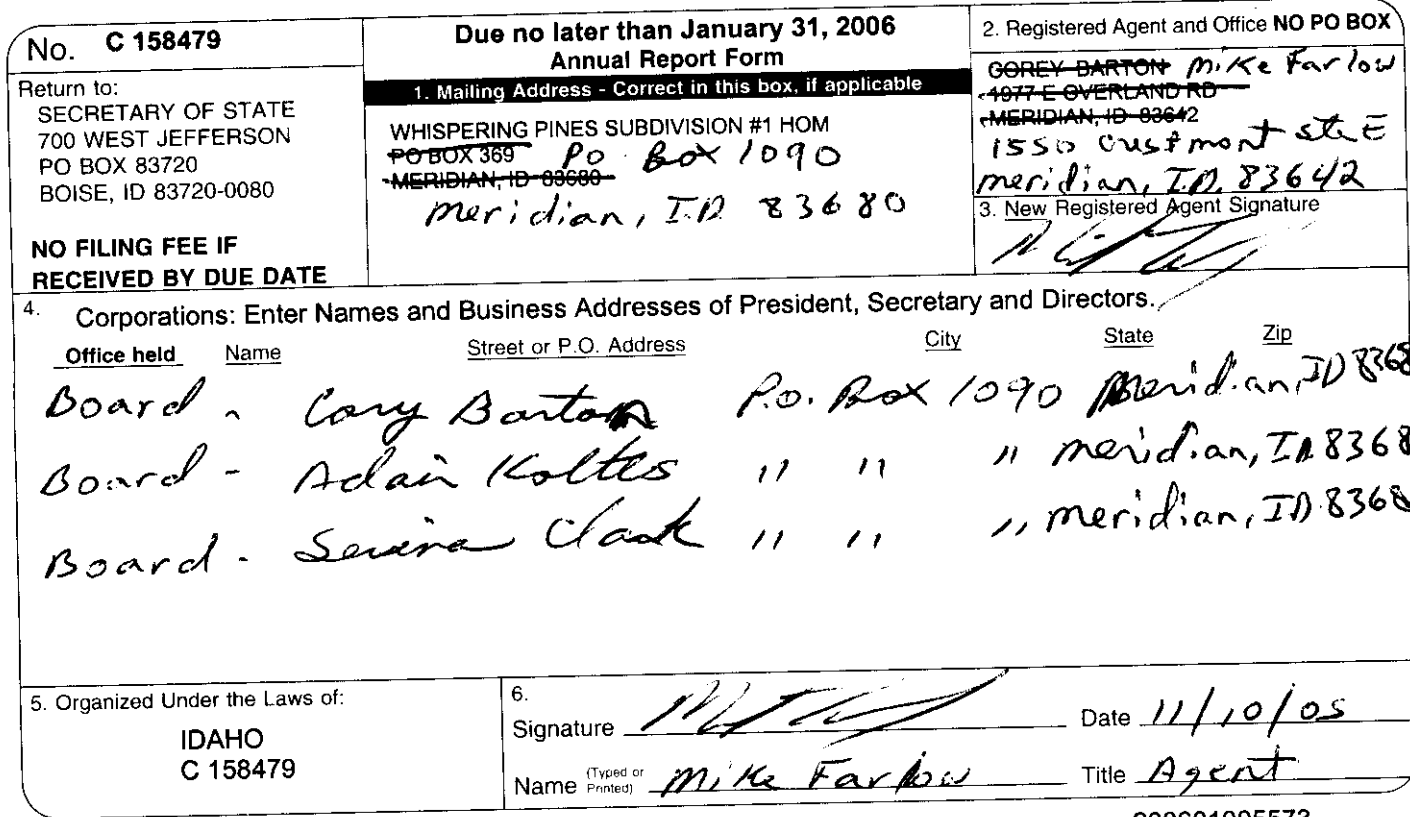 No. C 158479
Return to:
SECRETARY OF STATE
700 WEST JEFFERSON
PO BOX 83720
BOISE, ID 83720-0080
NO FILING FEE IF
RECEIVED BY DUE DATE
Due no later than January 31, 2006
Annual Report Form
1. Mailing Address - Correct in this box, if applicable
WHISPERING PINES SUBDIVISION #1 HOM
PO BOX 369 PO Box 1090
MERIDIAN, ID 83680
meridian, I.D. 83680
2. Registered Agent and Office NO PO BOX
COREY BARTON Mike Farlow
1977 E OVERLAND RD
MERIDIAN, ID 83642
1550 ste E
meridian, I.D. 83642
3. New Registered Agent Signature
4. Corporations: Enter Names and Business Addresses of President, Secretary and Directors.
Office held Name Street or P.O. Address City State Zip
Board - Cory Barton P.O. Box 1090 Meridian, ID 8368
Board - Adair Koltes " " " meridian, ID 8368
Board - " " " meridian, ID 8368
5. Organized Under the Laws of:
IDAHO
C 158479
6.
Signature Date 11/10/05
Name (Typed or Printed) Mike Farlow Title Agent